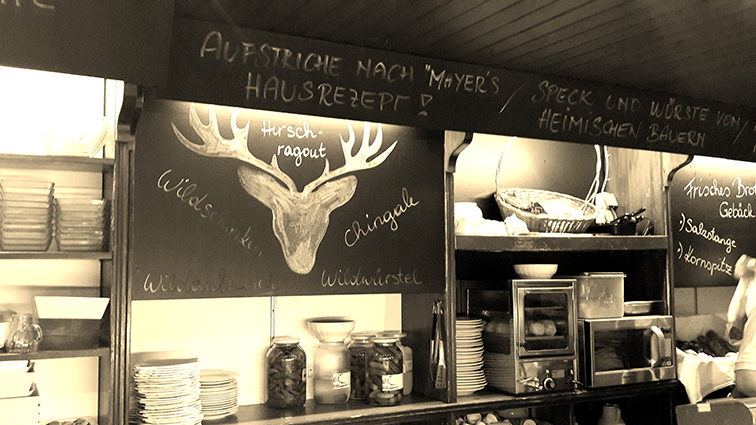 AUFSTRICHE NACH "MAYER'S
HAUSREZEPT!
/ SPECK UND WÜRSTE VON
HEIMISCHEN BAUERN /
Hirsch-
ragout
Wildschinken
Chingale
Wildwürstel
Frisches Brot
Gebäck
:) Salzstange
:) Kornspitz